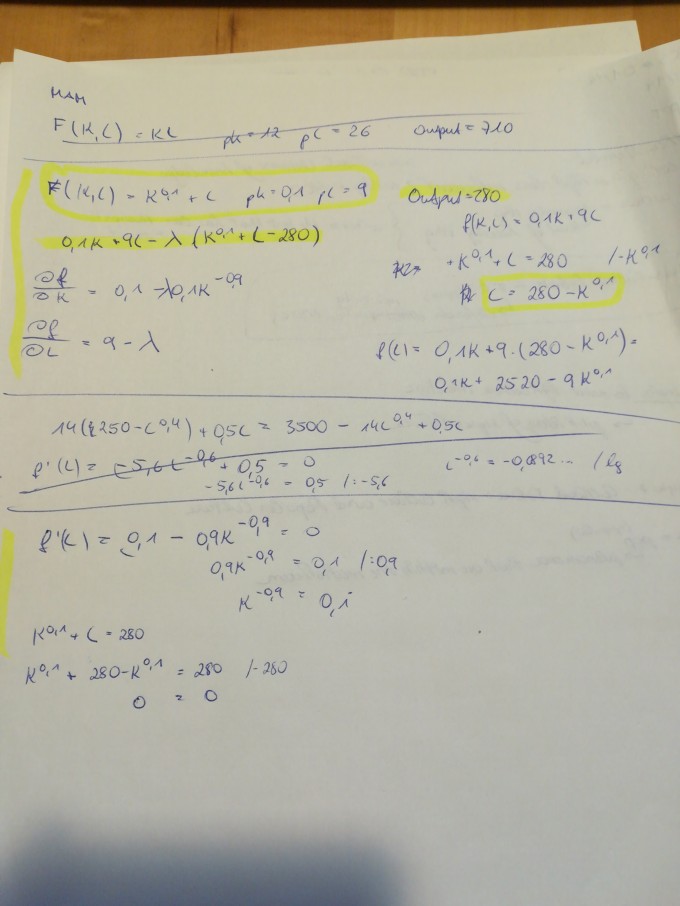 F(K,L) = KL pk = 12 pL = 26 Output = 710
F(K,L) = K^0,1 + L pk = 0,1 pL = 9 Output = 280
f(K,L) = 0,1K + 9L
0,1K + 9L - λ (K^0,1 + L - 280)
+K^0,1 + L = 280 /-K^0,1
∂f/∂K = 0,1 - λ0,1K^-0,9
L = 280 - K^0,1
∂f/∂L = 9 - λ
f(L) = 0,1K + 9·(280 - K^0,1) =
0,1K + 2520 - 9K^0,1
14(250 - L^0,4) + 0,5L = 3500 - 14L^0,4 + 0,5L
f'(L) = -5,6L^-0,6 + 0,5 = 0
L^-0,6 = -0,0892... / lg
-5,6L^-0,6 = 0,5 /:-5,6
f'(L) = 0,1 - 0,9K^-0,9 = 0
0,9K^-0,9 = 0,1 /:0,9
K^-0,9 = 0,1
K^0,1 + L = 280
K^0,1 + 280 - K^0,1 = 280 /-280
0 = 0